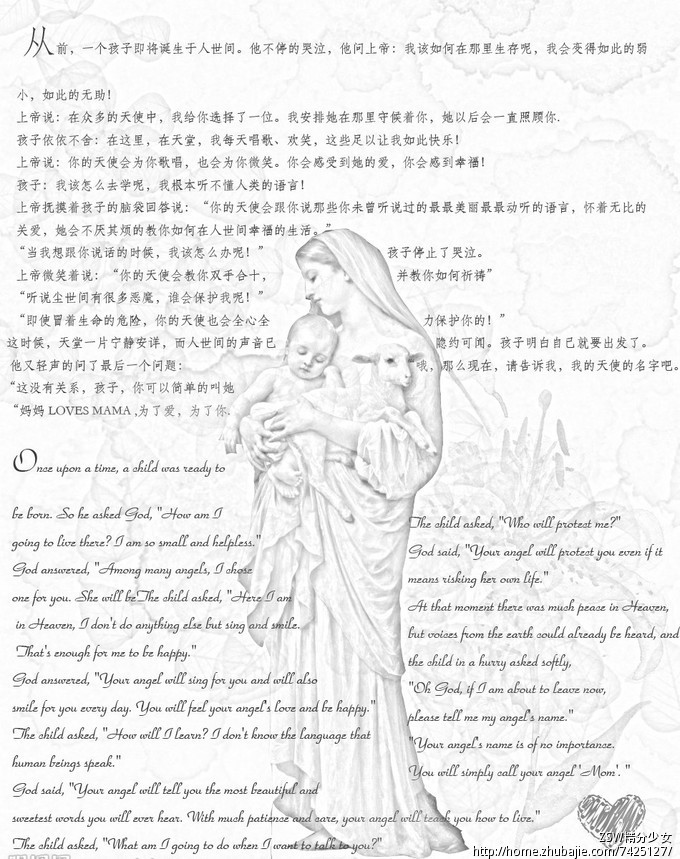 从前，一个孩子即将诞生于人世间。他不停的哭泣，他问上帝：我该如何在那里生存呢，我会变得如此的弱
小，如此的无助！
上帝说：在众多的天使中，我给你选择了一位。我安排她在那里守候着你，她以后会一直照顾你.
孩子依依不舍：在这里，在天堂，我每天唱歌、欢笑，这些足以让我如此快乐！
上帝说：你的天使会为你歌唱，也会为你微笑。你会感受到她的爱，你会感到幸福！
孩子：我该怎么去学呢，我根本听不懂人类的语言！
上帝抚摸着孩子的脑袋回答说：“你的天使会跟你说那些你未曾听说过的最最美丽最最动听的语言，怀着无比的
关爱，她会不厌其烦的教你如何在人世间幸福的生活。”
“当我想跟你说话的时候，我该怎么办呢！” 孩子停止了哭泣。
上帝微笑着说：“你的天使会教你双手合十， 并教你如何祈祷”
“听说尘世间有很多恶魔，谁会保护我呢！”
“即使冒着生命的危险，你的天使也会全心全 力保护你的！”
这时候，天堂一片宁静安详，而人世间的声音已 隐约可闻。孩子明白自己就要出发了。
他又轻声的问了最后一个问题： 哦，那么现在，请告诉我，我的天使的名字吧。
“这没有关系，孩子，你可以简单的叫她
“妈妈 LOVES MAMA ,为了爱，为了你.
Once upon a time, a child was ready to
be born. So he asked God, "How am I
going to live there? I am so small and helpless."
God answered, "Among many angels, I chose
one for you. She will beThe child asked, "Here I am
in Heaven, I don't do anything else but sing and smile.
That's enough for me to be happy."
God answered, "Your angel will sing for you and will also
smile for you every day. You will feel your angel's love and be happy."
The child asked, "How will I learn? I don't know the language that
human beings speak."
God said, "Your angel will tell you the most beautiful and
sweetest words you will ever hear. With much patience and care, your angel will teach you how to live."
The child asked, "What am I going to do when I want to talk to you?"
The child asked, "Who will protect me?"
God said, "Your angel will protect you even if it
means risking her own life."
At that moment there was much peace in Heaven,
but voices from the earth could already be heard, and
the child in a hurry asked softly,
"Oh God, if I am about to leave now,
please tell me my angel's name."
"Your angel's name is of no importance.
You will simply call your angel 'Mom'. "
ZSW精分少女
http://home.zhubajie.com/7425127/